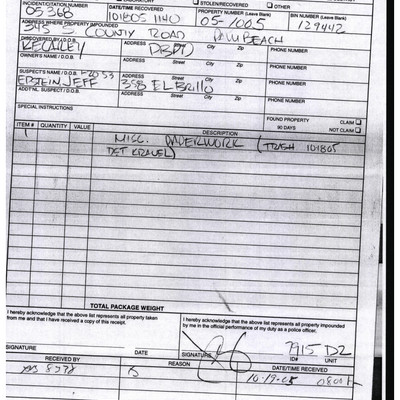 STOLEN/RECOVERED OTHER
INCIDENT/CITATION NUMBER DATE/TIME RECOVERED PROPERTY NUMBER (Leave Blank) BIN NUMBER (Leave Blank)
05-368 101805 1140 05-1005 129442
ADDRESS WHERE PROPERTY IMPOUNDED
345 S COUNTY ROAD PALM BEACH
DISCOVERED BY / D.O.B. ADDRESS City Zip PHONE NUMBER
RECAREY DBPD
OWNER'S NAME / D.O.B. ADDRESS Street City Zip PHONE NUMBER
SUSPECT'S NAME / D.O.B. ADDRESS Street City Zip PHONE NUMBER
EPSTEIN JEFF 358 EL BRILLO
ADDT'NL. SUSPECT / D.O.B. ADDRESS Street City Zip PHONE NUMBER
SPECIAL INSTRUCTIONS FOUND PROPERTY CLAIM
90 DAYS NOT CLAIM
ITEM # QUANTITY VALUE DESCRIPTION
1 MISC. PAPERWORK (TRASH 101805
DET KRAUEL)
TOTAL PACKAGE WEIGHT
I hereby acknowledge that the above list represents all property taken
from me and that I have received a copy of this receipt.
I hereby acknowledge that the above list represents all property impounded
by me in the official performance of my duty as a police officer.
7915 D2
SIGNATURE DATE SIGNATURE ID# UNIT
RECEIVED BY REASON DATE/TIME RECEIVED
8378 10-19-05 0800